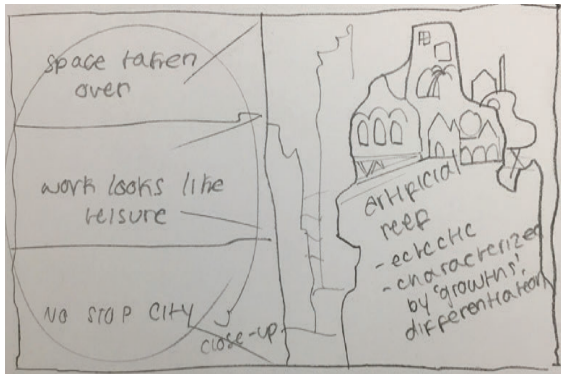 space taken
over
work looks like
leisure
NO STOP CITY
close-up
artificial
reef
- eclectic
- characterized
by 'growths',
differentiation